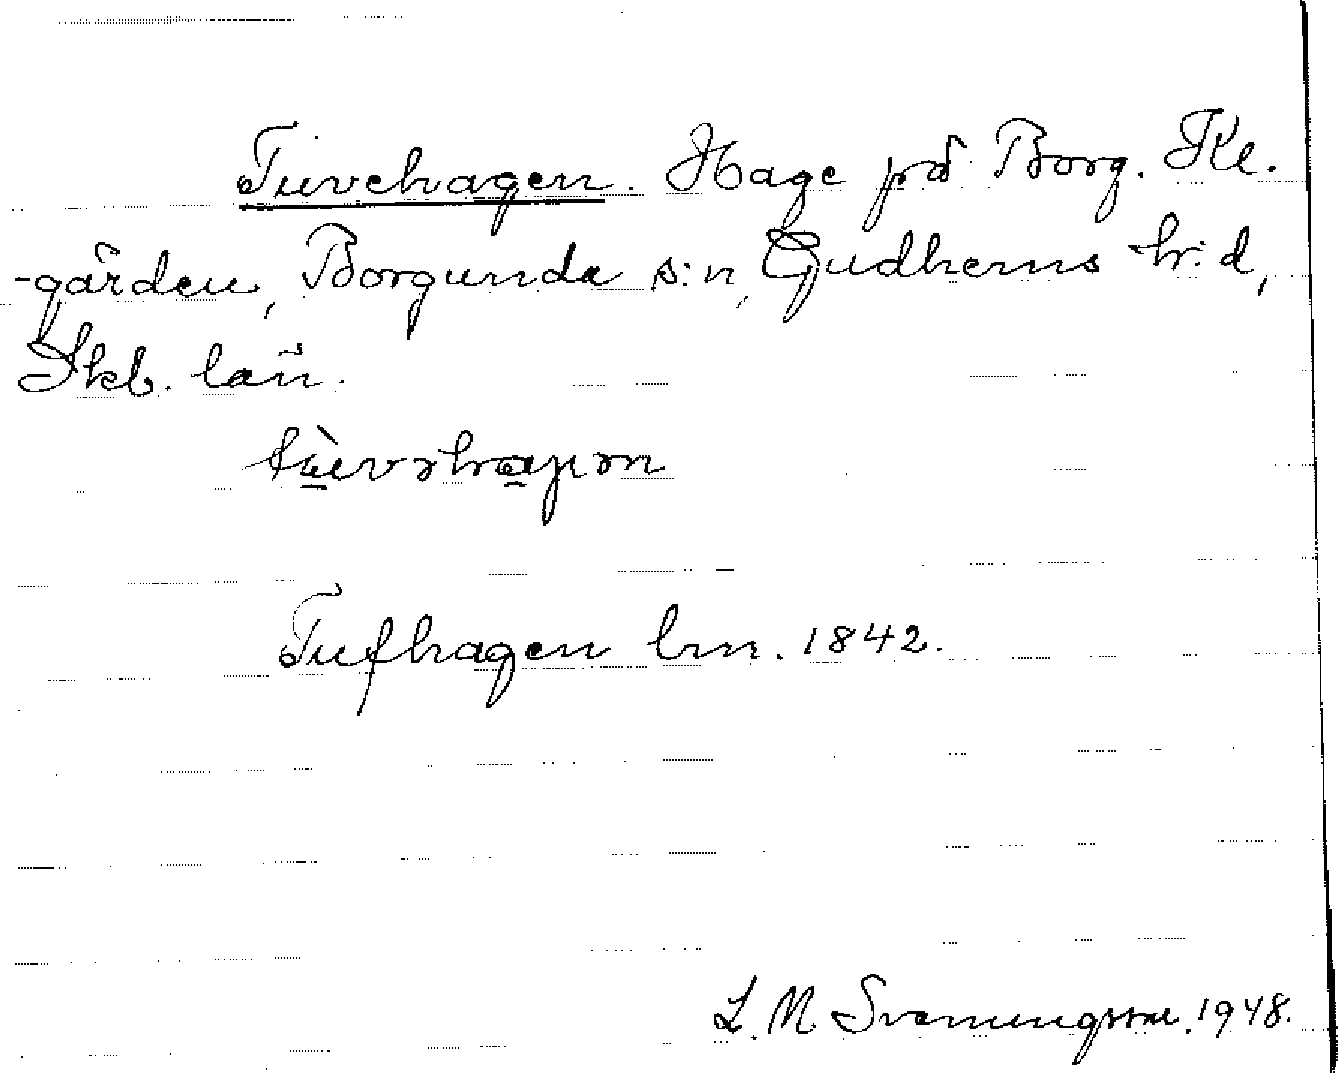 Tuvehagen. Hage på Borg. Kl.
-gården, Borgunda s:n, Gudhems hr:d,
Skb. län.
Tufhagen lm. 1842.
L. M. Svenungsson. 1948.